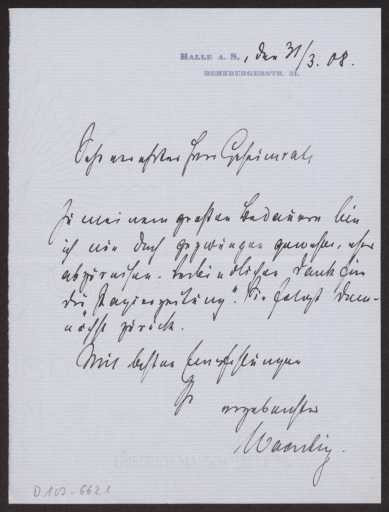 HALLE A. S., den 31/3. 08.
BERNBURGERSTR. 21.
Sehr verehrter Herr Geheimrat
Zu meinem großen Bedauern bin
ich nun doch gezwungen gewesen, eher
abzureisen. Verbindlichen Dank für
die "Papierzeitung". Sie folgt dem-
nächst zurück.
Mit besten Empfehlungen
Ihr
ergebenster
D 102-6621